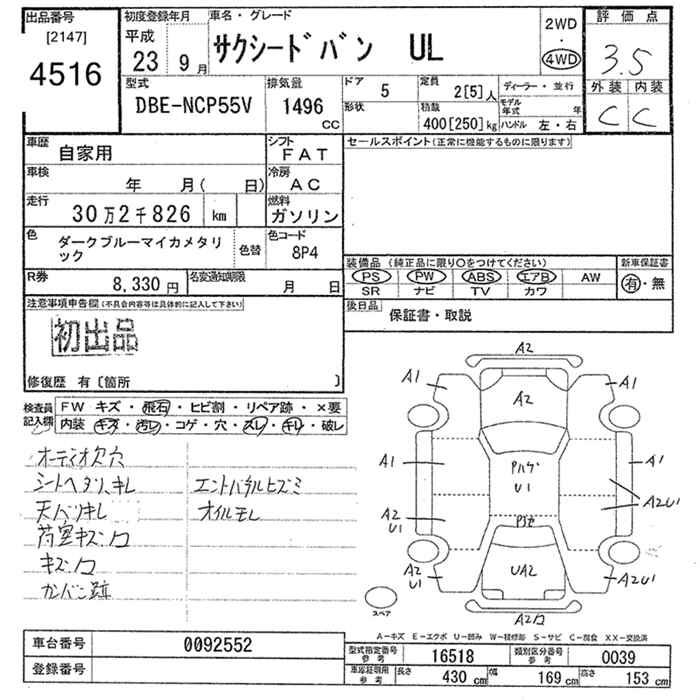 出品番号
[2147]
4516
初度登録年月
平成
23 9月
車名・グレード
サクシードバン UL
2WD
・
4WD
評価点
3.5
外装 内装
C C
型式
DBE-NCP55V
排気量
1496
cc
ドア 5
形状
定員
2[5]人
積載
400[250]kg
ディーラー・並行
モデル年式 年
ハンドル 左・右
車歴 自家用
シフト
FAT
車検
年 月( 日)
冷房
AC
走行
30万2千826 km
燃料
ガソリン
色
ダークブルーマイカメタリ
ック
色替
色コード
8P4
R券
8,330円
名変通知期限
月 日
セールスポイント(正常に機能するものに限ります)
装備品(純正品に限り○をつけてください)
PS・PW・ABS・エアB・AW
SR ナビ TV カワ
新車保証書
有・無
後日品
保証書・取説
注意事項申告欄(不具合内容等は具体的に記入して下さい)
初出品
修復歴 有〔箇所 〕
検査員
記入欄
FW キズ・飛石・ヒビ割・リペア跡・×要
内装 キズ・汚レ・コゲ・穴・スレ・キレ・破レ
オーディオ欠穴
シートヘタリ、キレ
天バリキレ
荷室キズ凹
キズ凹
カンバン跡
オイルモレ
A2
A1 A1
A2
A1 A1
U1
A2
U1
A2U1
A2
U1
UA2
A2U1
A2凹
スペア
A-キズ E-エクボ U-凹み W-補修跡 S-サビ C-腐食 XX-交換済
車台番号 0092552
登録番号
型式指定番号
参考
16518
類別区分番号
参考
0039
車庫証明用
参考
長さ
430cm
幅
169cm
高さ
153cm